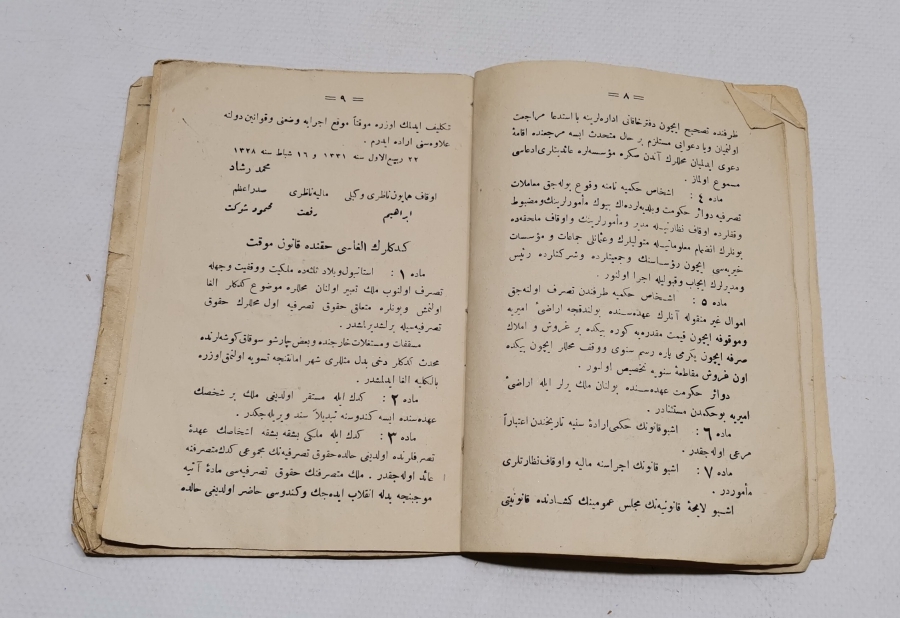 = ٨ =
طرفنده تصحیح ایچون دفترخاقانی اداره‌لرینه با استدعا مراجعت
اولنمیان ویا دعوانی مستلزم بر حال متحدث ایسه مرجعنده اقامهٔ
دعوی ایدلمیان محللرك آندن صكره مؤسسه‌لره عائدیتلری ادعاسی
مسموع اولماز .
ماده ٤ : اشخاص حكمیه نامنه وقوع بوله‌جق معاملات
تصرفیه دوائر حكومت وبلدیه‌لرده‌اك بیوك مأمورلرینك ومضبوط
وقفلرده اوقاف نظارتیله مدیر ومأمورلرینك واوقاف ملحقه‌ده
بونلرك انضمام معلوماتیله متولیلرك وعثمانلی جماعات و مؤسسات
خیریه‌سی ایچون رؤساسنك وجمعیتلرده وشركتلرده رئیس
ومدیرلرك ایجاب وقبولیله اجرا اولنور .
ماده ٥ : اشخاص حكمیه طرفندن تصرف اولنه‌جق
اموال غیر منقوله آنلرك عهده‌سنده بولندقجه اراضئ امیریه
وموقوفه ایچون قیمت مقدره‌یه كوره بیكده بر غروش و املاك
صرفه ایچون یكرمی پاره رسم سنوی ووقف محللر ایچون بیكده
اون غروش مقاطعهٔ سنویه تخصیص اولنور .
دوائر حكومت عهده‌سنده بولنان ملك یرلر ایله اراضئ
امیریه بوحكمدن مستثنادر .
ماده ٦ : اشبو قانونك حكمی ارادهٔ سنیه تاریخندن اعتباراً
مرعی اوله‌جقدر .
ماده ٧ : اشبو قانونك اجراسنه مالیه واوقاف نظارتلری
مأموردر .
اشبو لایحهٔ قانونیه‌نك مجلس عمومینك كشادنده قانونیتی
= ٩ =
تكلیف ایدلمك اوزره موقتاً موقع اجرایه وضعنی وقوانین دولته
علاوه‌سنی اراده ایدرم .
٢٢ ربیع الاول سنه ١٣٣١ و ١٦ شباط سنه ١٣٢٨
محمد رشاد
اوقاف همایون ناظری و كیلی مالیه ناظری صدراعظم
ابراهیم رفعت محمود شوكت
كدكلرك الغاسی حقنده قانون موقت
ماده ١ : استانبول وبلاد ثلثه‌ده ملكیت ووقفیت وجهله
تصرف اولنوب ملك تعبیر اولنان محللره موضوع كدكلر الغا
اولنمش وبونلره متعلق حقوق تصرفیه اول محللرك حقوق
تصرفیه‌سیله برلشدیرلشدر .
مسقفات ومستغلات خارجنده وبعض چارشو سوقاق كوشه‌لرنده
محدث كدكلر دخی بدل مثللری شهر امانتنجه تسویه اولنمق اوزره
بالكلیه الغا ایدلمشدر .
ماده ٢ : كدك ایله مستقر اولدیغی ملك بر شخصك
عهده‌سنده ایسه كندوسنه تبدیلاً سند ویریله‌جكدر .
ماده ٣ : كدك ایله ملكی بشقه بشقه اشخاصك عهدهٔ
تصرفلرنده اولدیغی حالده حقوق تصرفیه‌نك مجموعی كدك متصرفنه
عائد اوله‌جقدر . ملك متصرفنك حقوق تصرفیه‌سی مادهٔ آتیه
موجبنجه بدله انقلاب ایده‌جك وكندوسی حاضر اولدیغی حالده